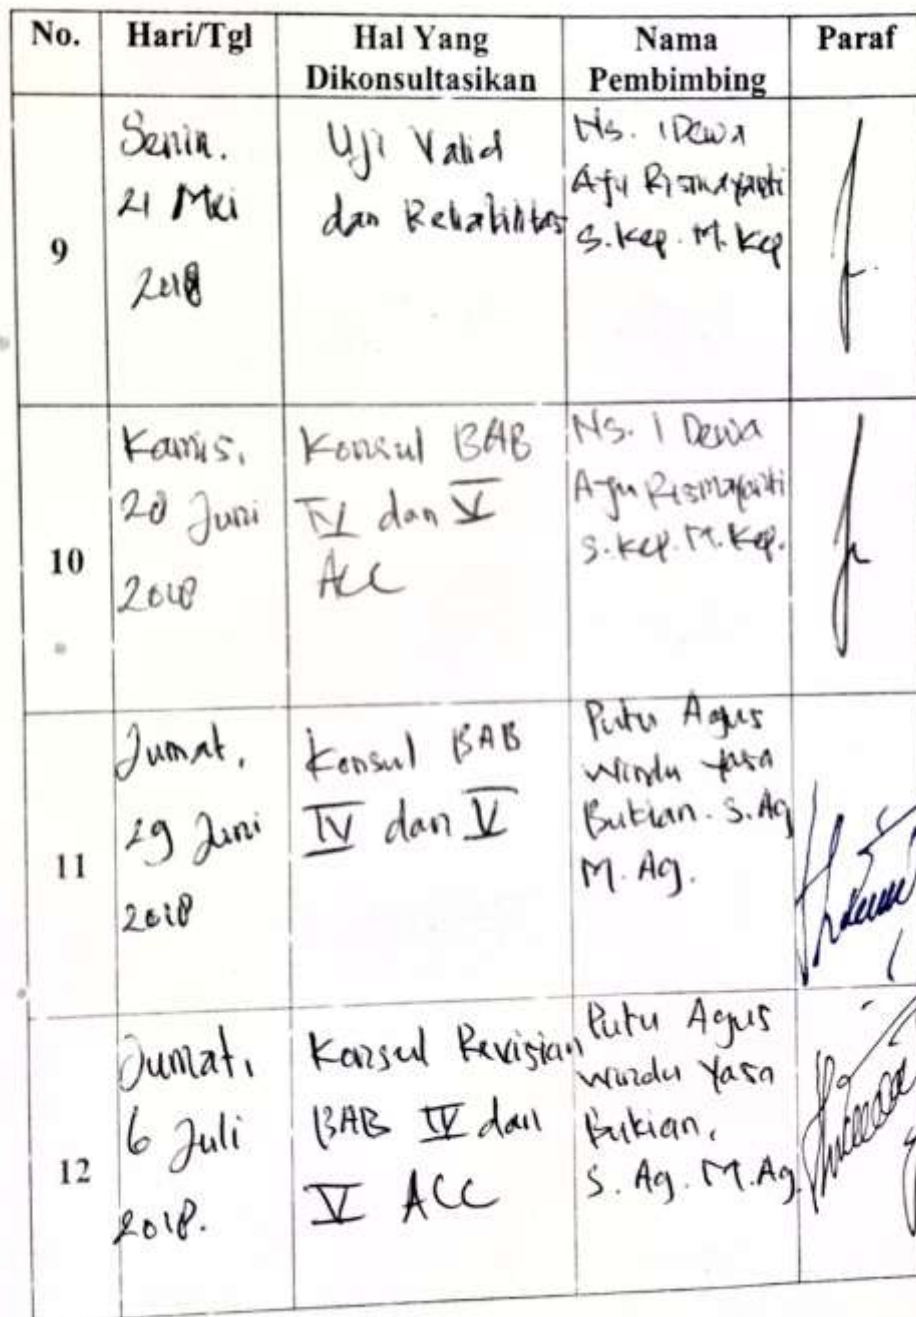 No. Hari/Tgl Hal Yang Dikonsultasikan Nama Pembimbing Paraf
9
Senin,
21 Mei
2018
Uji Valid
dan Reliabilitas
Ns. I Dewa
Ayu Rismayanti
S.Kep. M. Kep
10
Kamis,
28 Juni
2018
Konsul BAB
IV dan V
ACC
Ns. I Dewa
Ayu Rismayanti
S.Kep. M.Kep.
11
Jumat,
29 Juni
2018
Konsul BAB
IV dan V
Putu Agus
Windu Yasa
Bukian. S.Ag
M. Ag.
12
Jumat,
6 Juli
2018.
Konsul Revisian
BAB IV dan
V ACC
Putu Agus
Windu Yasa
Bukian,
S. Ag. M.Ag